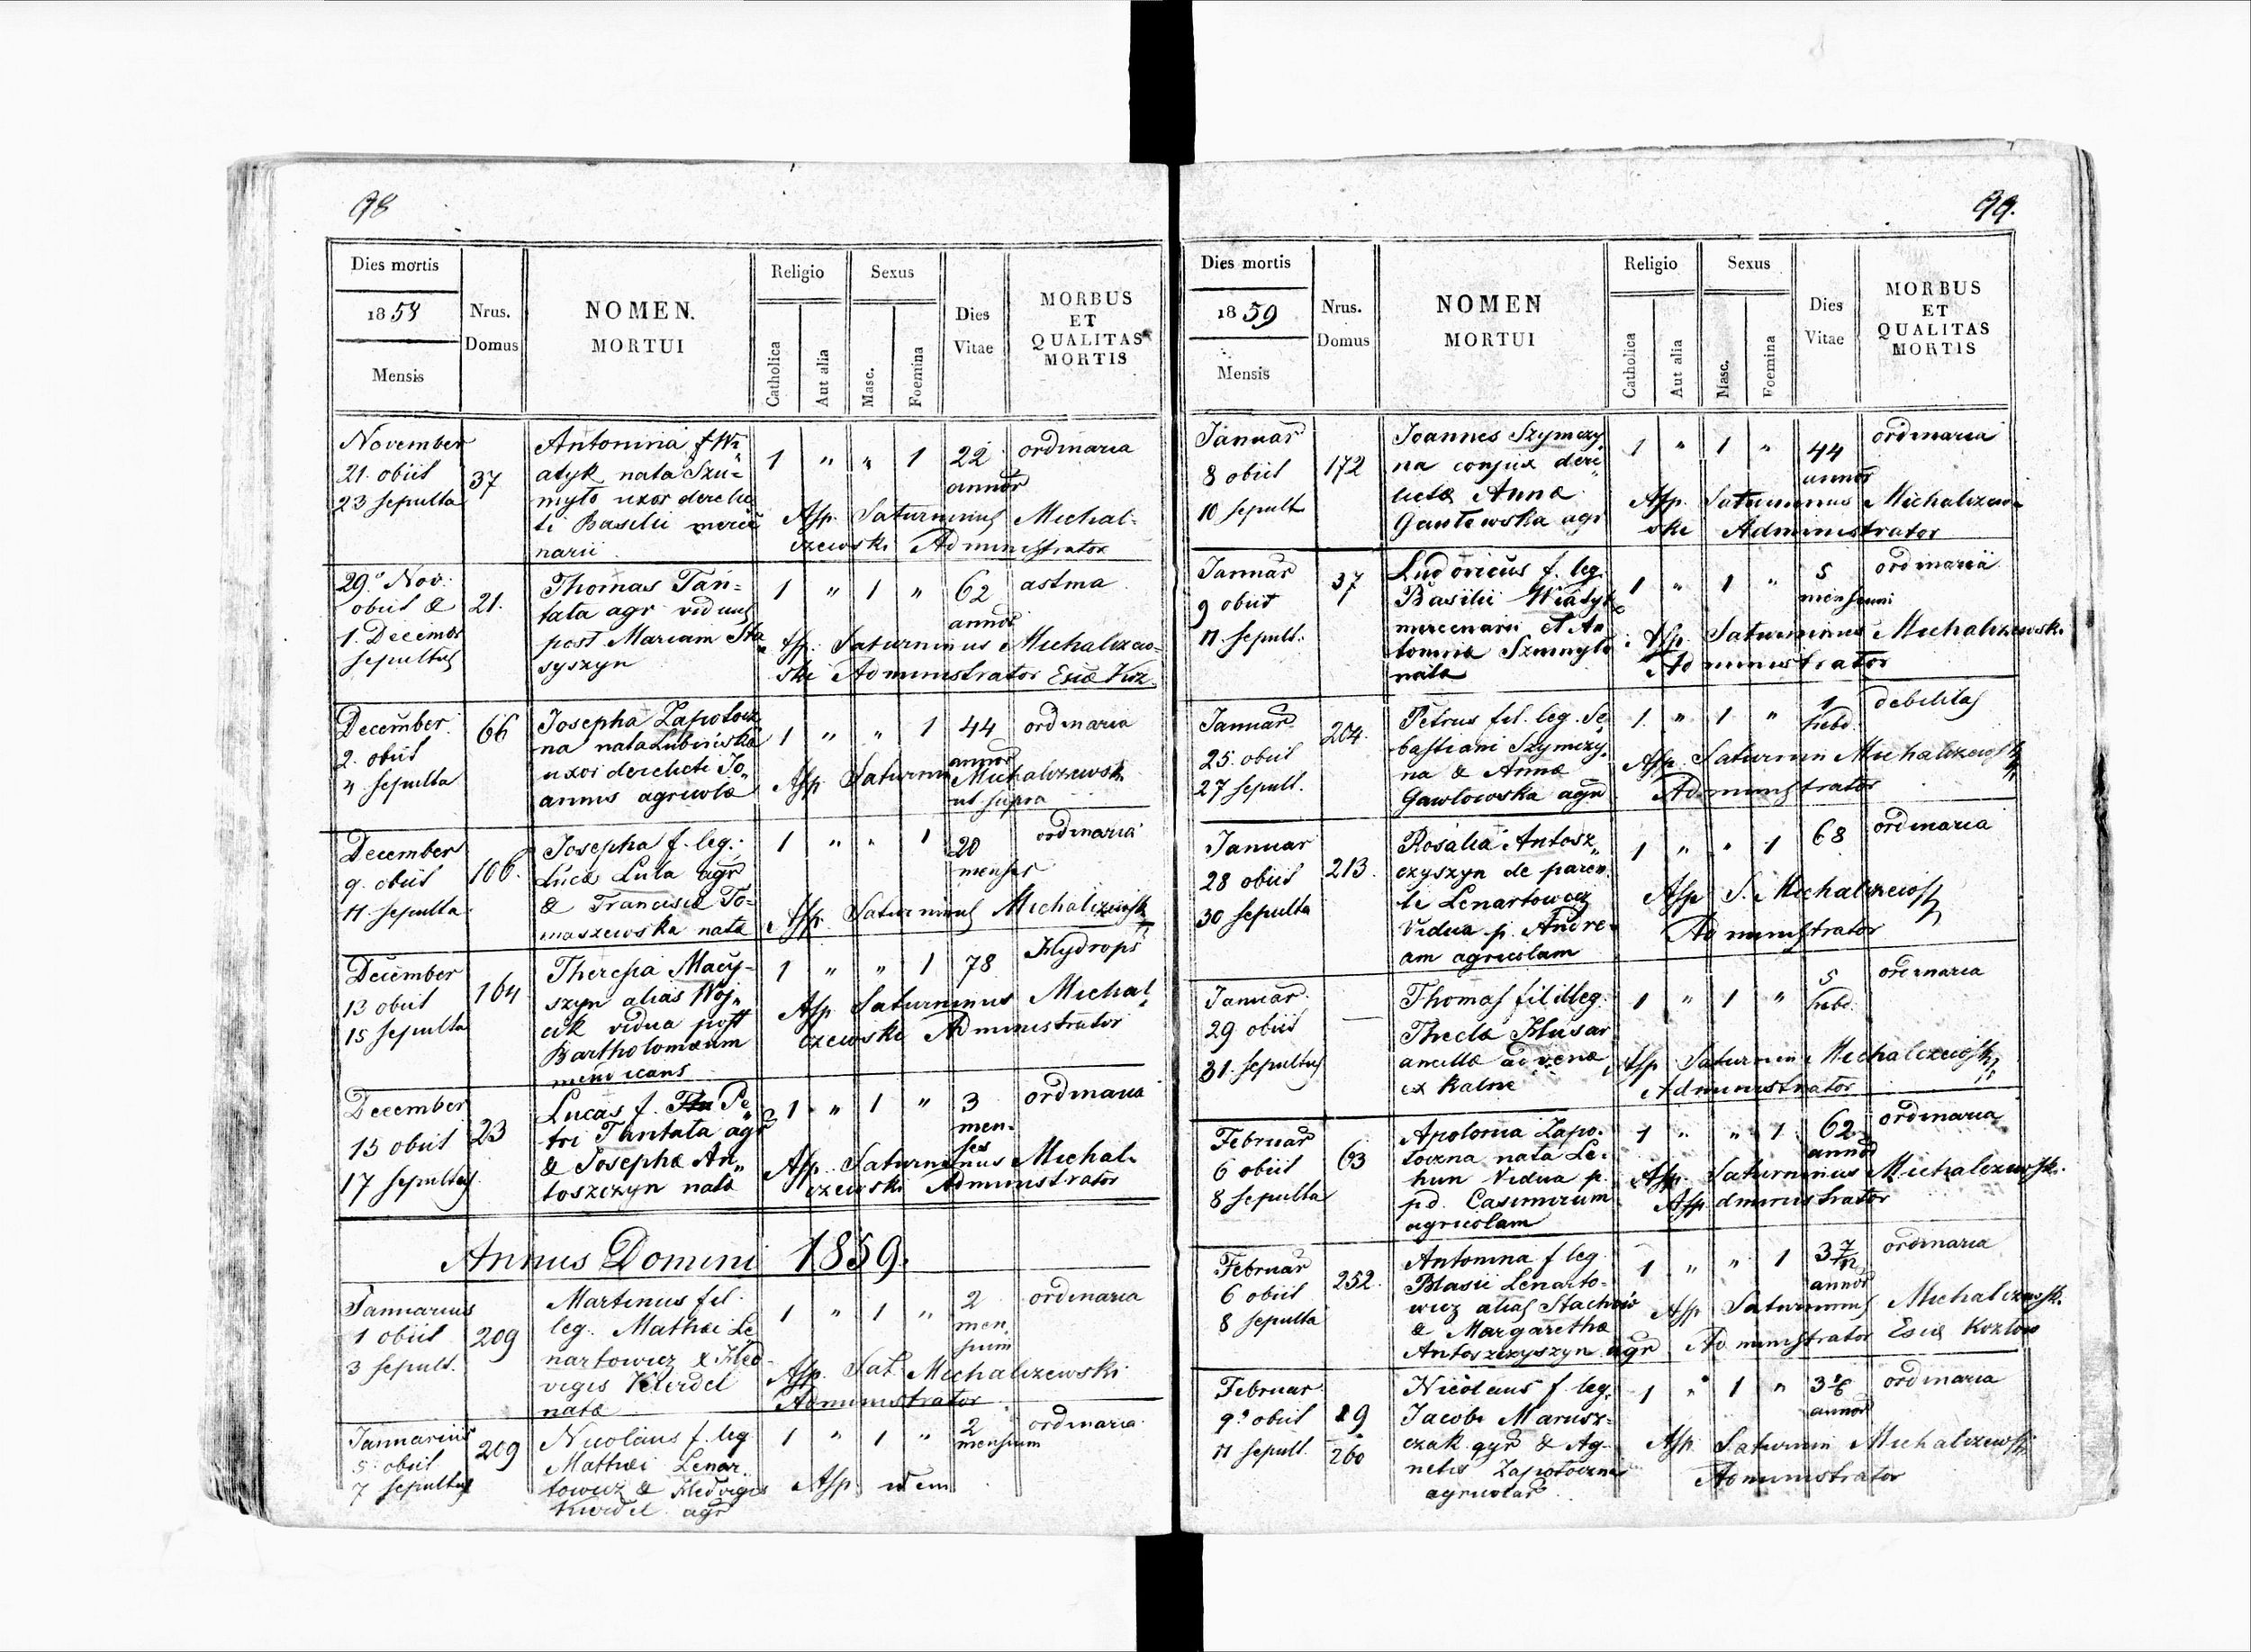 98
Dies mortis
1858
Mensis
Nrus.
Domus
NOMEN.
MORTUI
Religio
Catholica
Aut alia
Sexus
Masc.
Foemina
Dies
Vitae
MORBUS
ET
QUALITAS
MORTIS
November
21. obiit
23 sepulta
37
Antonina
nata Szu-
myło uxor derelic
ti Basilii merce
narii
1 " " 1 22 annor
ordinaria
Asp. Saturninus Michal-
czewski Administrator
29. Nov.
obiit &
1. Decembr
sepultus
21.
Thomas Tan-
tata agr viduus
post Mariam Sta
syszyn
1 " 1 " 62 annor
astma
Asp. Saturninus Michalczew-
ski Administrator
December
2. obiit
4 sepulta
66
Josepha Zapotocz
na nata Lubinska
uxor derelicti Jo
annis agricolæ
1 " " 1 44 annor
ordinaria
Asp Saturnin Michalczewsk
ut supra
December
9. obiit
11 sepulta
106.
Josepha f. leg.
Lucæ Lula agr
& Franciscæ To-
maszewska nata
1 " " 1 20 menses
ordinaria
Asp. Saturninus Michalczewsk
December
13 obiit
15 sepulta
164
Theresia Macy-
szyn alias Woj
cik vidua post
Bartholomæum
mendicans
1 " " 1 78
Hydrops
Asp Saturninus Michal
czewski Administrator
December
15 obiit
17 sepultus
23
Lucas f. Pe
tri Tantata agr
& Josephæ An
toszczyn nata
1 " 1 " 3 men-
ses
ordinaria
Asp. Saturninus Michal-
czewski Administrator
Annus Domini 1859.
Januarius
1 obiit
3 sepult.
209
Martinus fil.
leg. Mathæi Le
nartowicz & Hed
vigis
nata
1 " 1 " 2 men
sium
ordinaria
Asp. Sat. Michalczewski
Administrator
Januarius
5. obiit
7 sepultus
209
Nicolaus f. leg
Mathæi Lenar
towicz & Hedvigis
agr
1 " 1 " 2 mensium
ordinaria
Asp idem
99.
Dies mortis
1859
Mensis
Nrus.
Domus
NOMEN
MORTUI
Religio
Catholica
Aut alia
Sexus
Masc.
Foemina
Dies
Vitae
MORBUS
ET
QUALITAS
MORTIS
Januar
8 obiit
10 sepult
172
Joannes Szymczy
na conjux dere
lictæ Anna
Gawłowska agr
1 " 1 " 44 annor
ordinaria
Asp. Saturninus Michalczew
ski Administrator
Januar
9 obiit
11 sepult.
37
Ludovicus f. leg.
Basilii Wiatyk
mercenarii et An
tonina Szumyło
nata
1 " 1 " 5 mensium
ordinaria
Asp. Saturninus Michalczewski
Administrator
Januar
25. obiit
27 sepult.
204.
Petrus fil. leg. Se
bastiani Szymczy
na & Anna
Gawłowska agr
1 " 1 " 1 hebd.
debilitas
Asp. Saturnin Michalczewski
Administrator
Januar
28 obiit
30 sepulta
213.
Rosalia Antosz
czyszyn de paren
te Lenartowicz
Vidua p. Andre
am agricolam
1 " " 1 68
ordinaria
Asp S. Michalczewski
Administrator
Januar
29. obiit
31. sepultus
Thomas fil illeg.
Theclæ Husar
ancillæ advenæ
ex Kalne
1 " 1 " 5 hebd.
ordinaria
Asp Saturnin Michalczewski
Administrator
Februar
6 obiit
8 sepulta
63
Apolonia Zapo-
toczna nata Le-
hun Vidua p.
pd. Casimirum
agricolam
1 " " 1 62 annor
ordinaria
Asp. Saturninus Michalczewsk.
Administrator
Februar
6 obiit
8 sepulta
252.
Antonina f leg
Blasii Lenarto-
wicz alias Stachow
& Margaretha
Antoszczyszyn agr
1 " " 1 3 7/12 annor
ordinaria
Asp Saturninus Michalczewsk.
Administrator
Februar
9. obiit
11 sepult.
260
Nicolaus f. leg.
Jacobi Marusz-
czak agr & Ag-
netis Zapotoczna
agricolar
1 " 1 " annor
ordinaria
Asp. Saturnin Michalczewski
Administrator